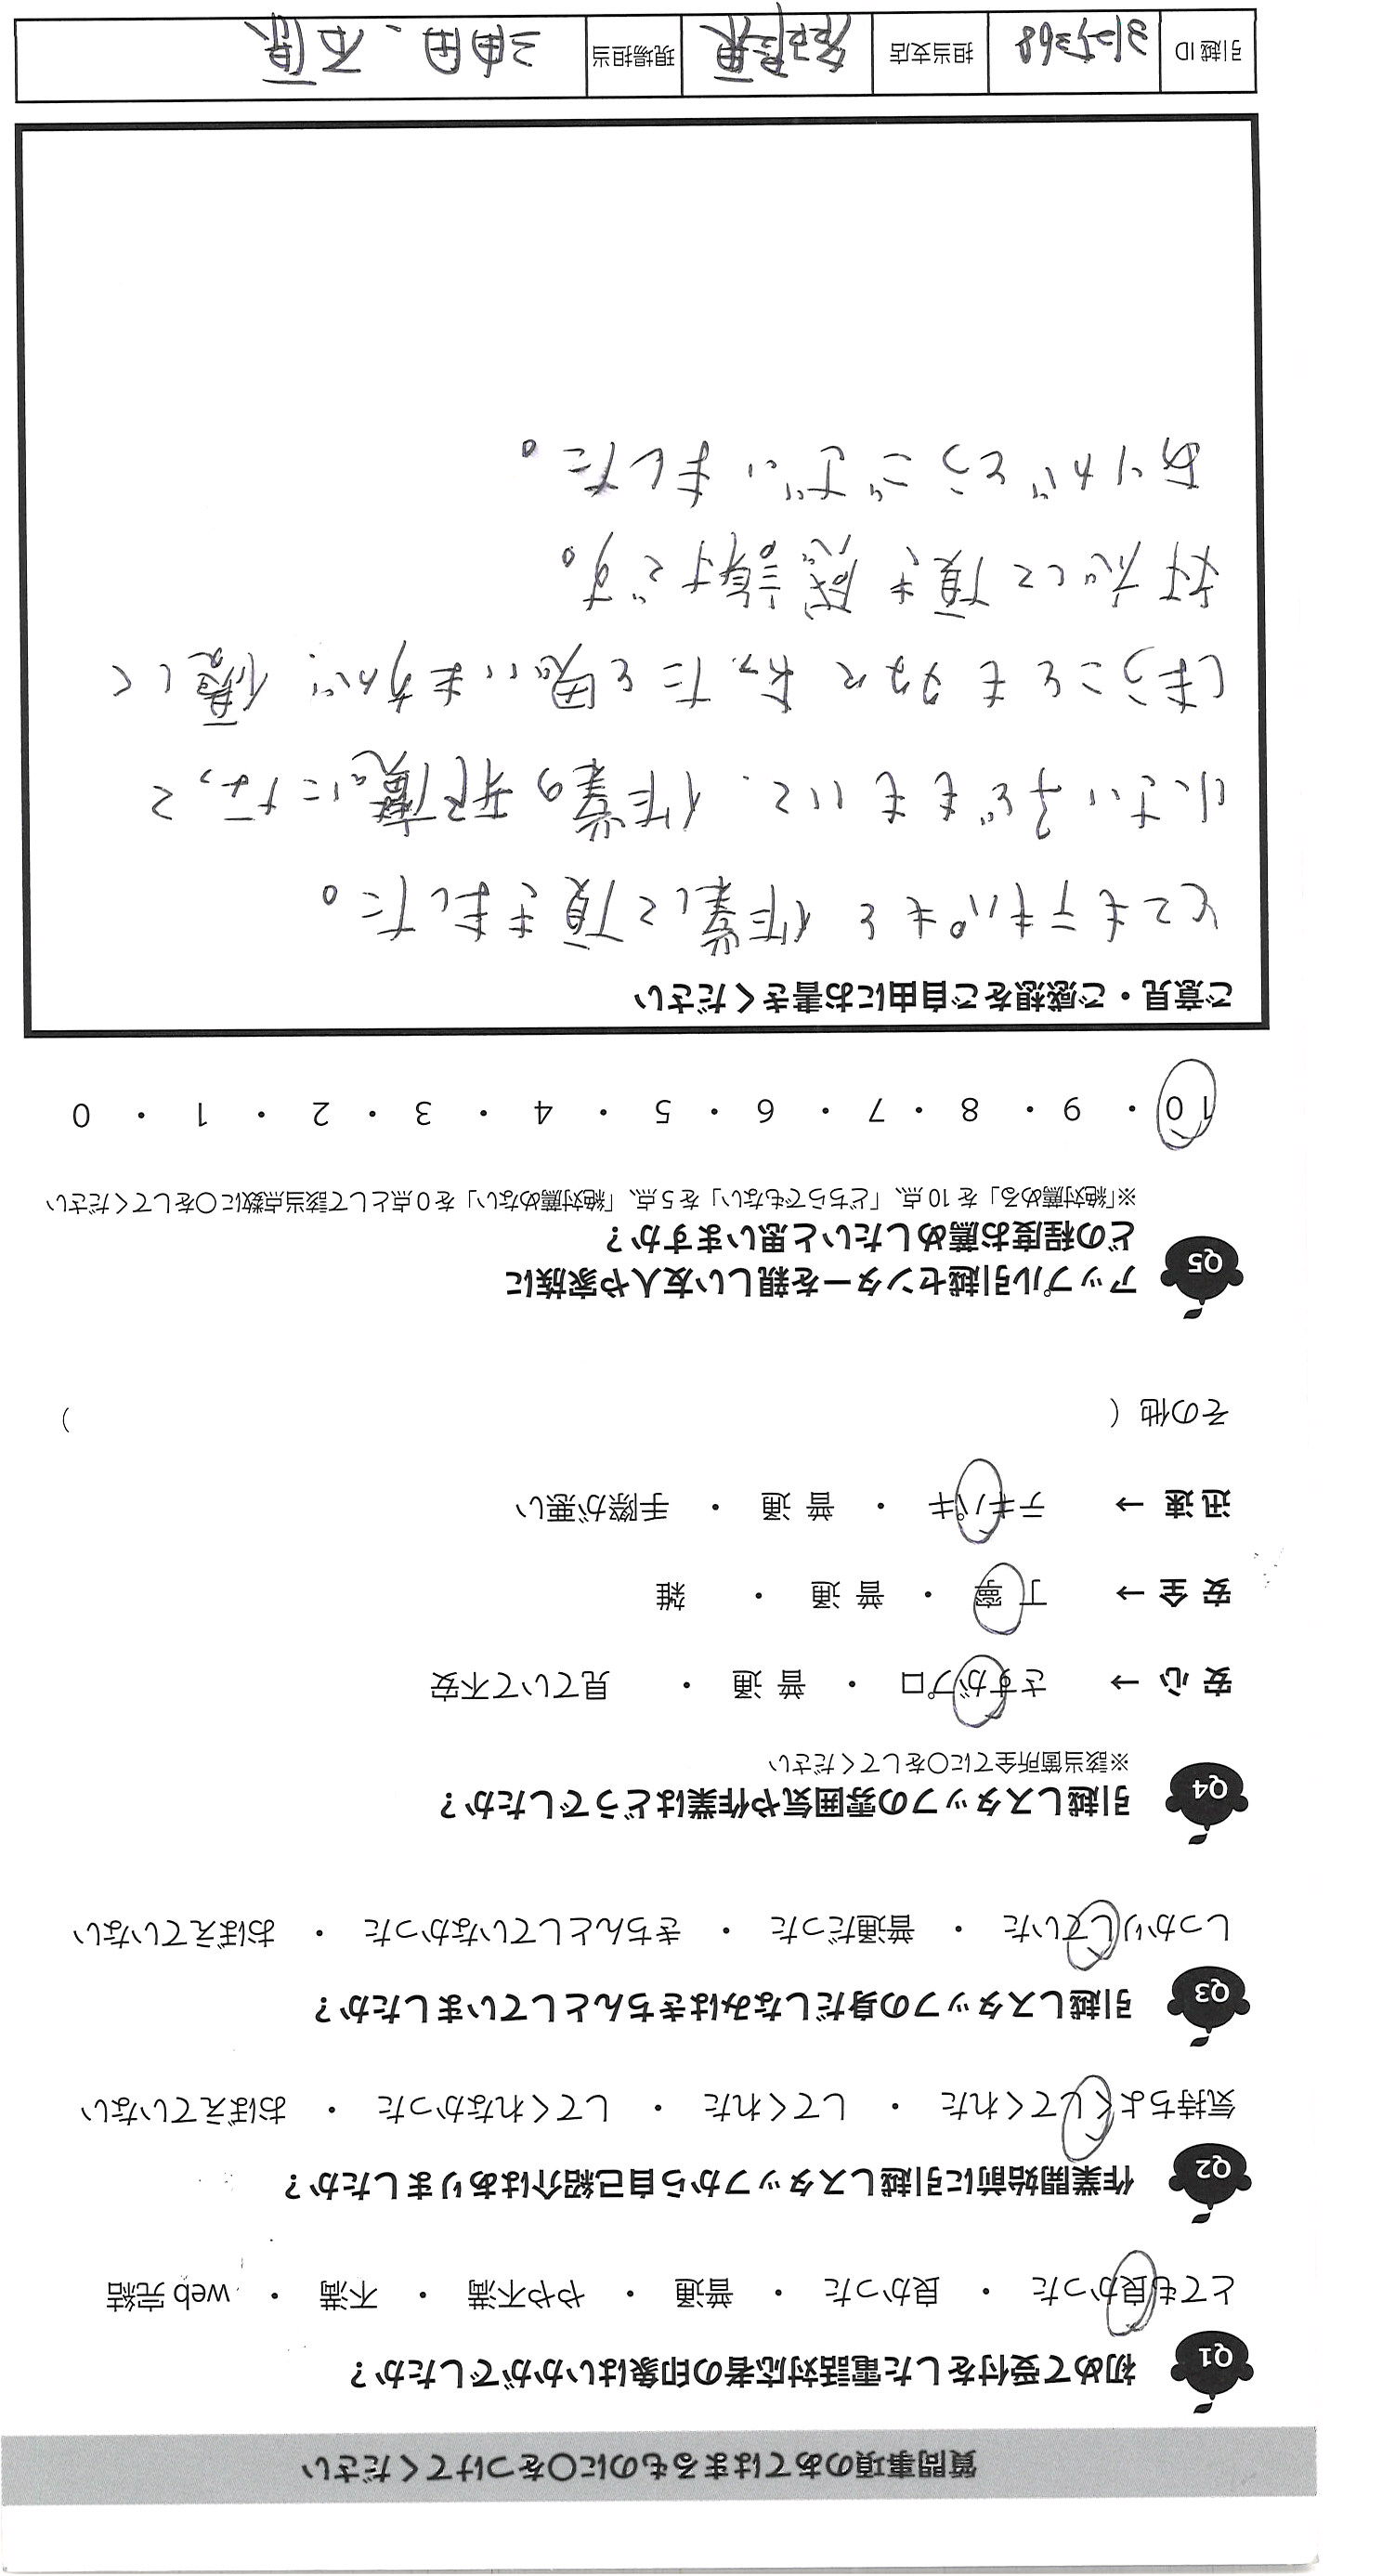 質問事項のあてはまるものに○をつけてください
Q1 初めて受付をした電話対応者の印象はいかがでしたか？
とても良かった ・ 良かった ・ 普通 ・ やや不満 ・ 不満 ・ web 完結
Q2 作業開始前に引越しスタッフから自己紹介はありましたか？
気持ちよくしてくれた ・ してくれた ・ してくれなかった ・ おぼえていない
Q3 引越しスタッフの身だしなみはきちんとしていましたか？
しっかりしていた ・ 普通だった ・ きちんとしていなかった ・ おぼえていない
Q4 引越しスタッフの雰囲気や作業はどうでしたか？
※該当箇所全てに○をしてください
安 心 → さすがプロ ・ 普 通 ・ 見ていて不安
安 全 → 丁 寧 ・ 普 通 ・ 雑
迅 速 → テキパキ ・ 普 通 ・ 手際が悪い
その他（ ）
Q5 アップル引越センターを親しい友人や家族に
どの程度お薦めしたいと思いますか？
※「絶対薦める」を 10 点、「どちらでもない」を 5 点、「絶対薦めない」を 0 点として該当点数に○をしてください
10 ・ 9 ・ 8 ・ 7 ・ 6 ・ 5 ・ 4 ・ 3 ・ 2 ・ 1 ・ 0
ご意見・ご感想をご自由にお書きください
とてもテキパキと 作業して頂きました。
小さい子どももいて、作業の邪魔になって
しまうことも多々あったと思いますが、優しく
対応して頂き感謝です。
ありがとうございました。
引越 ID 3125368 担当支店 現場担当